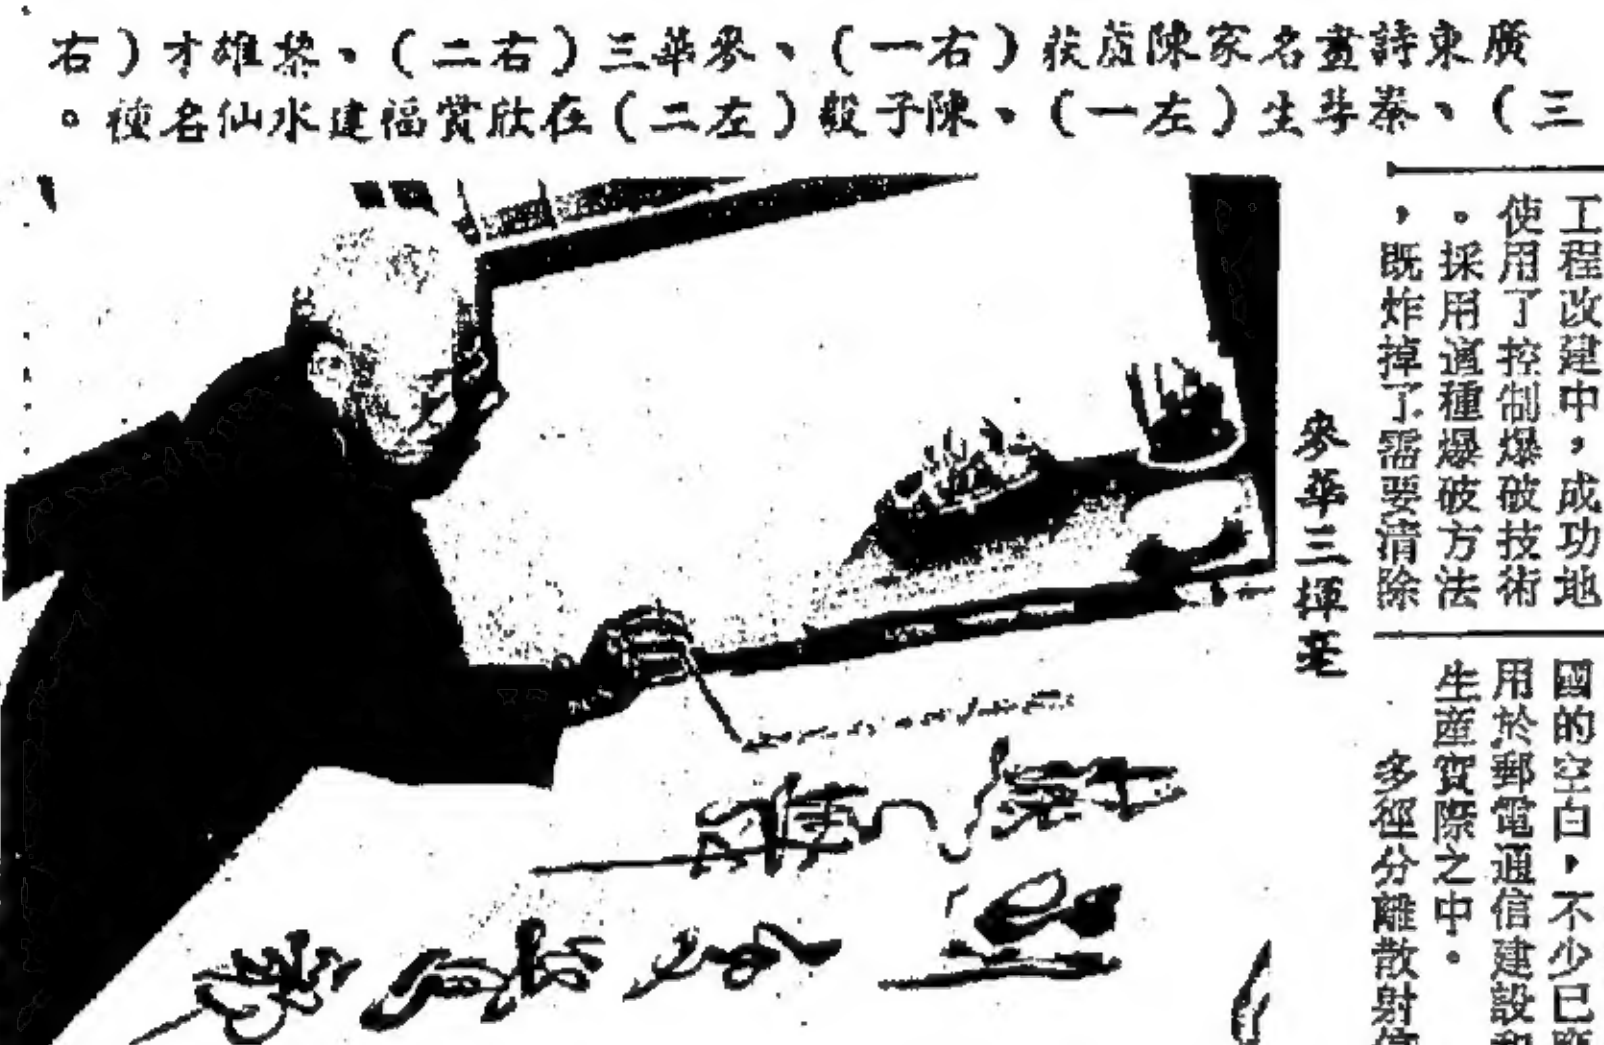 廣東詩畫名家陳蘆荻（右一）、麥華三（右二）、黎雄才（右
三）、秦咢生（左一）、陳子毅（左二）在欣賞福建水仙名種。
工程改建中，成功地
使用了控制爆破技術
。採用這種爆破方法
，既炸掉了需要清除
國的空白，不少已應
用於郵電通信建設和
生產實際之中。
多徑分離散射
麥華三揮毫